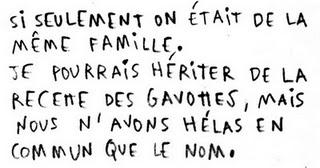 SI SEULEMENT ON ÉTAIT DE LA
MÊME FAMILLE.
JE POURRAIS HÉRITER DE LA
RECETTE DES GAVOTTES, MAIS
NOUS N'AVONS HÉLAS EN
COMMUN QUE LE NOM.